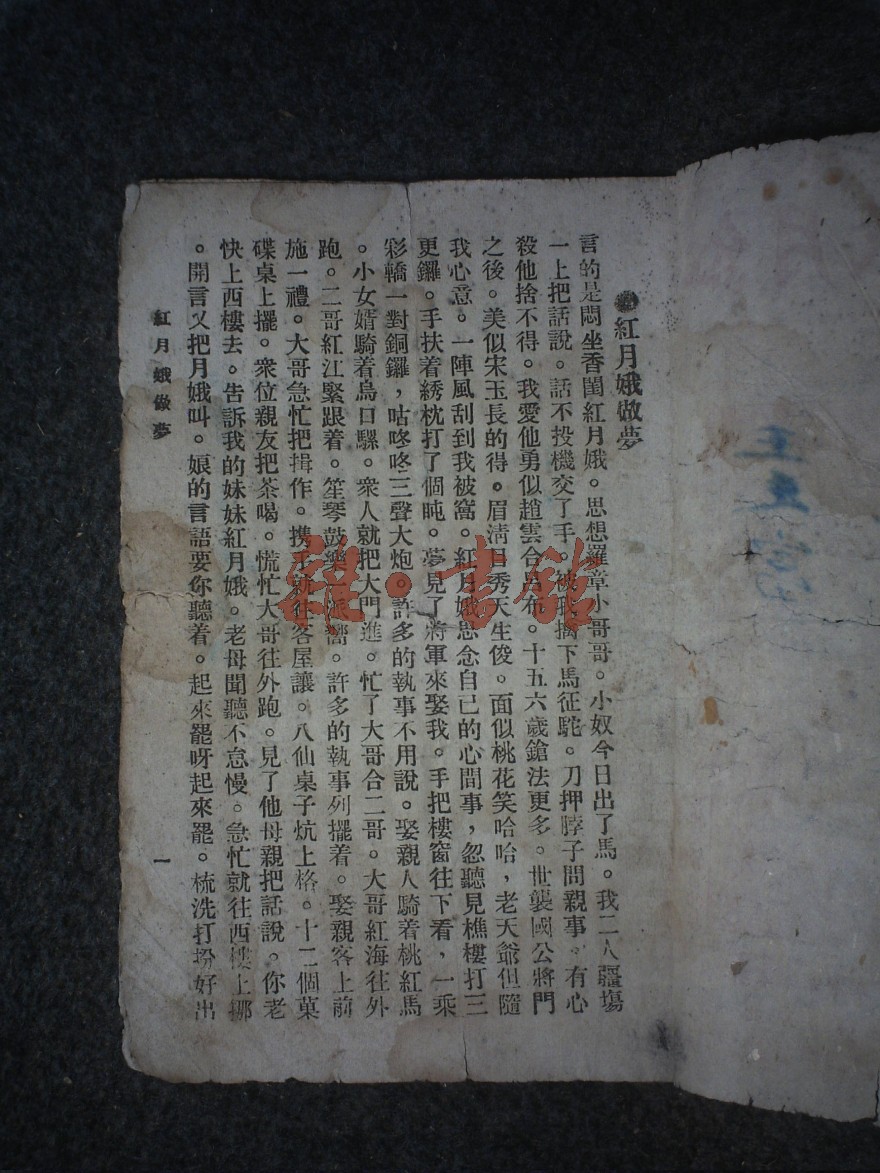 紅月娥做夢
言的是悶坐香閨紅月娥。思想羅章小哥哥。小奴今日出了馬。我二人疆塲
一上把話說。話不投機交了手。被我擒下馬征駝。刀押脖子問親事。有心
殺他捨不得。我愛他勇似趙雲合呂布。十五六歲鎗法更多。世襲國公將門
之後。美似宋玉長的得。眉淸目秀天生俊。面似桃花笑哈哈，老天爺但隨
我心意。一陣風刮到我被窩。紅月娥思念自已的心間事，忽聽見樵樓打三
更鑼。手扶着綉枕打了個盹。夢見了將軍來娶我。手把樓窗往下看，一乘
彩轎一對銅鑼，咕咚咚三聲大炮。許多的執事不用說。娶親人騎着桃紅馬
。小女婿騎着烏口騾。衆人就把大門進。忙了大哥合二哥。大哥紅海往外
跑。二哥紅江緊跟着。笙琴鼓樂 嚮。許多的執事列擺着。娶親客上前
施一禮。大哥急忙把揖作。携手就往客屋讓。八仙桌子炕上格。十二個菓
碟桌上擺。衆位親友把茶喝。慌忙大哥往外跑。見了他母親把話說。你老
快上西樓去。告訴我的妹妹紅月娥。老母聞聽不怠慢。急忙就往西樓上挪
。開言又把月娥叫。娘的言語要你聽着。起來罷呀起來罷。梳洗打扮好出
紅月娥做夢
一
雜·書館
王